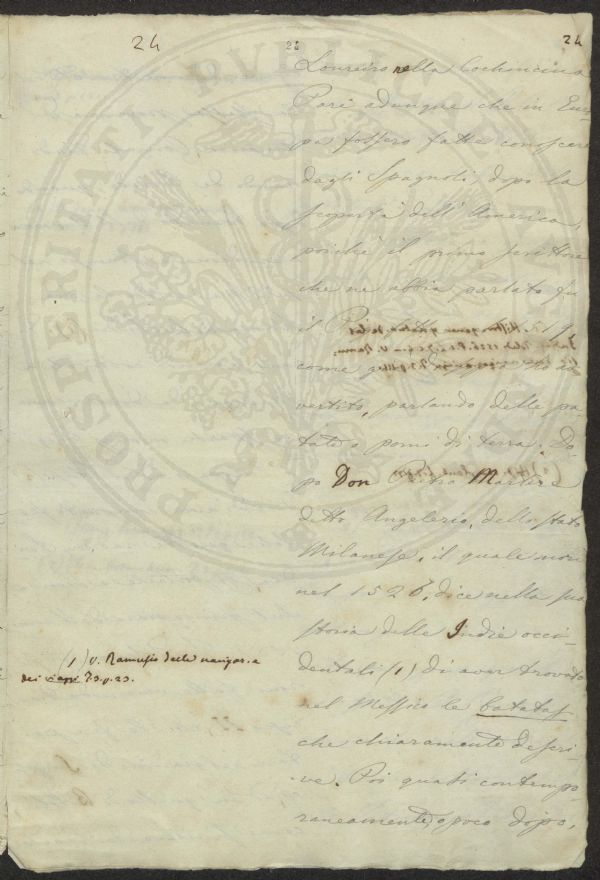 24
24
24
Loureiro nella Cochincina
Pari adunque che in Euro-
pa fossero fatte conoscere
dagli Spagnoli, dopo la
scoperta dell' America,
poichè il primo scrittore
che ne abbia parlato fu
il
come
vertito, parlando delle pa-
tate o pomi di terra. Do-
po Don Pietro Martire
detto Angelerio, dello stato
Milanese, il quale morì
nel 1526, dice nella sua
storia delle Indie occi-
dentali (1) di aver trovato
nel Messico le batatas
che chiaramente descri-
ve. Poi quasi contempo-
raneamente, o poco dopo,
(1) v. Ramusio delle navigaz. e
dei viaggi T.3.p.23.
PROSPERITATI PVBLICAE AVGENDAE